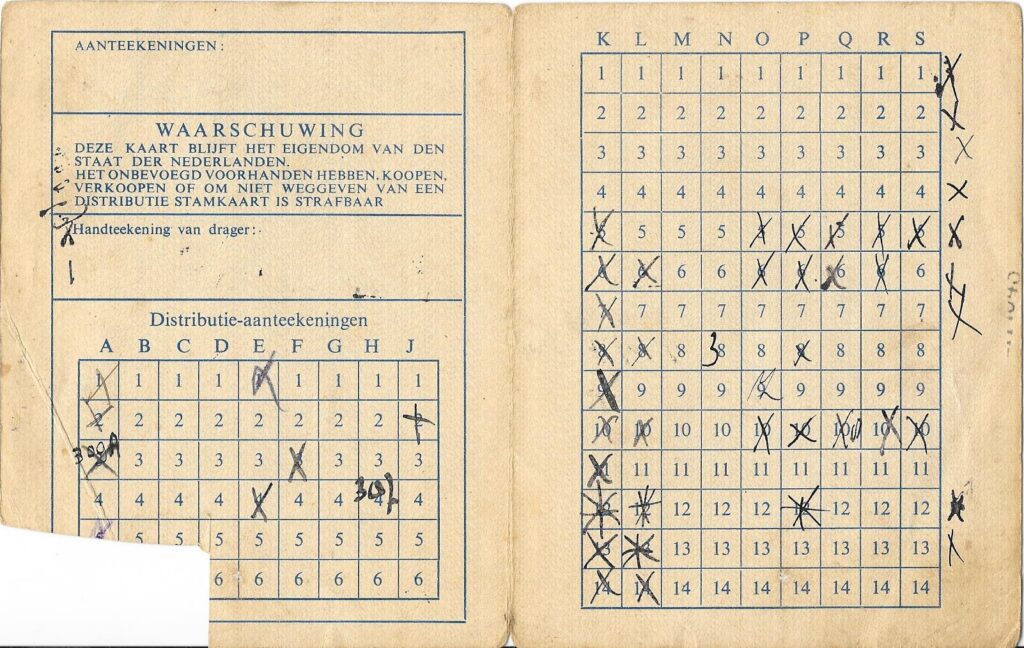 AANTEEKENINGEN:
WAARSCHUWING
DEZE KAART BLIJFT HET EIGENDOM VAN DEN
STAAT DER NEDERLANDEN.
HET ONBEVOEGD VOORHANDEN HEBBEN, KOOPEN,
VERKOOPEN OF OM NIET WEGGEVEN VAN EEN
DISTRIBUTIE STAMKAART IS STRAFBAAR
Handteekening van drager:
Distributie-aanteekeningen
A B C D E F G H J
1 1 1 1 1 1 1 1
2 2 2 2 2 2 2 2
3 3 3 3 3 3 3
4 4 4 4 4 4 4
5 5 5 5 5 5 5 5
6 6 6 6 6 6
K L M N O P Q R S
1 1 1 1 1 1 1 1 1
2 2 2 2 2 2 2 2 2
3 3 3 3 3 3 3 3 3
4 4 4 4 4 4 4 4 4
5 5 5 5 5
6 6 6 6 6 6
7 7 7 7 7 7 7 7
8 8 8 3 8 8 8 8 8
9 9 9 9 9 9 9
10 10 10 10 10 10 10
11 11 11 11 11 11 11 11
12 12 12 12 12 12
13 13 13 13 13 13 13
14 14 14 14 14 14 14 14 14